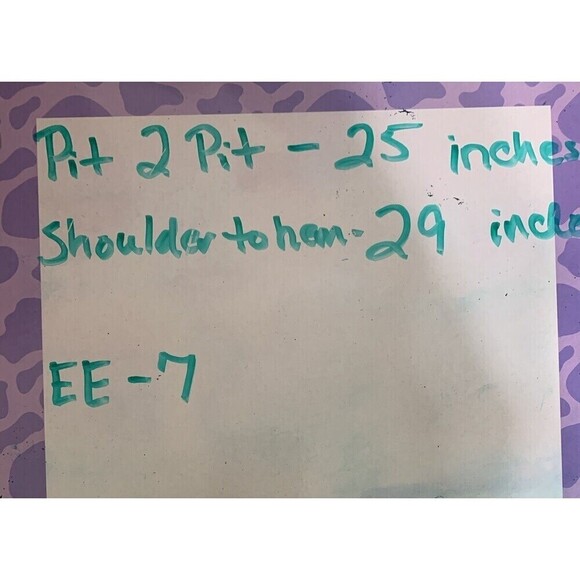 Pit 2 Pit - 25 inches
Shoulder to hem - 29 inche
EE - 7